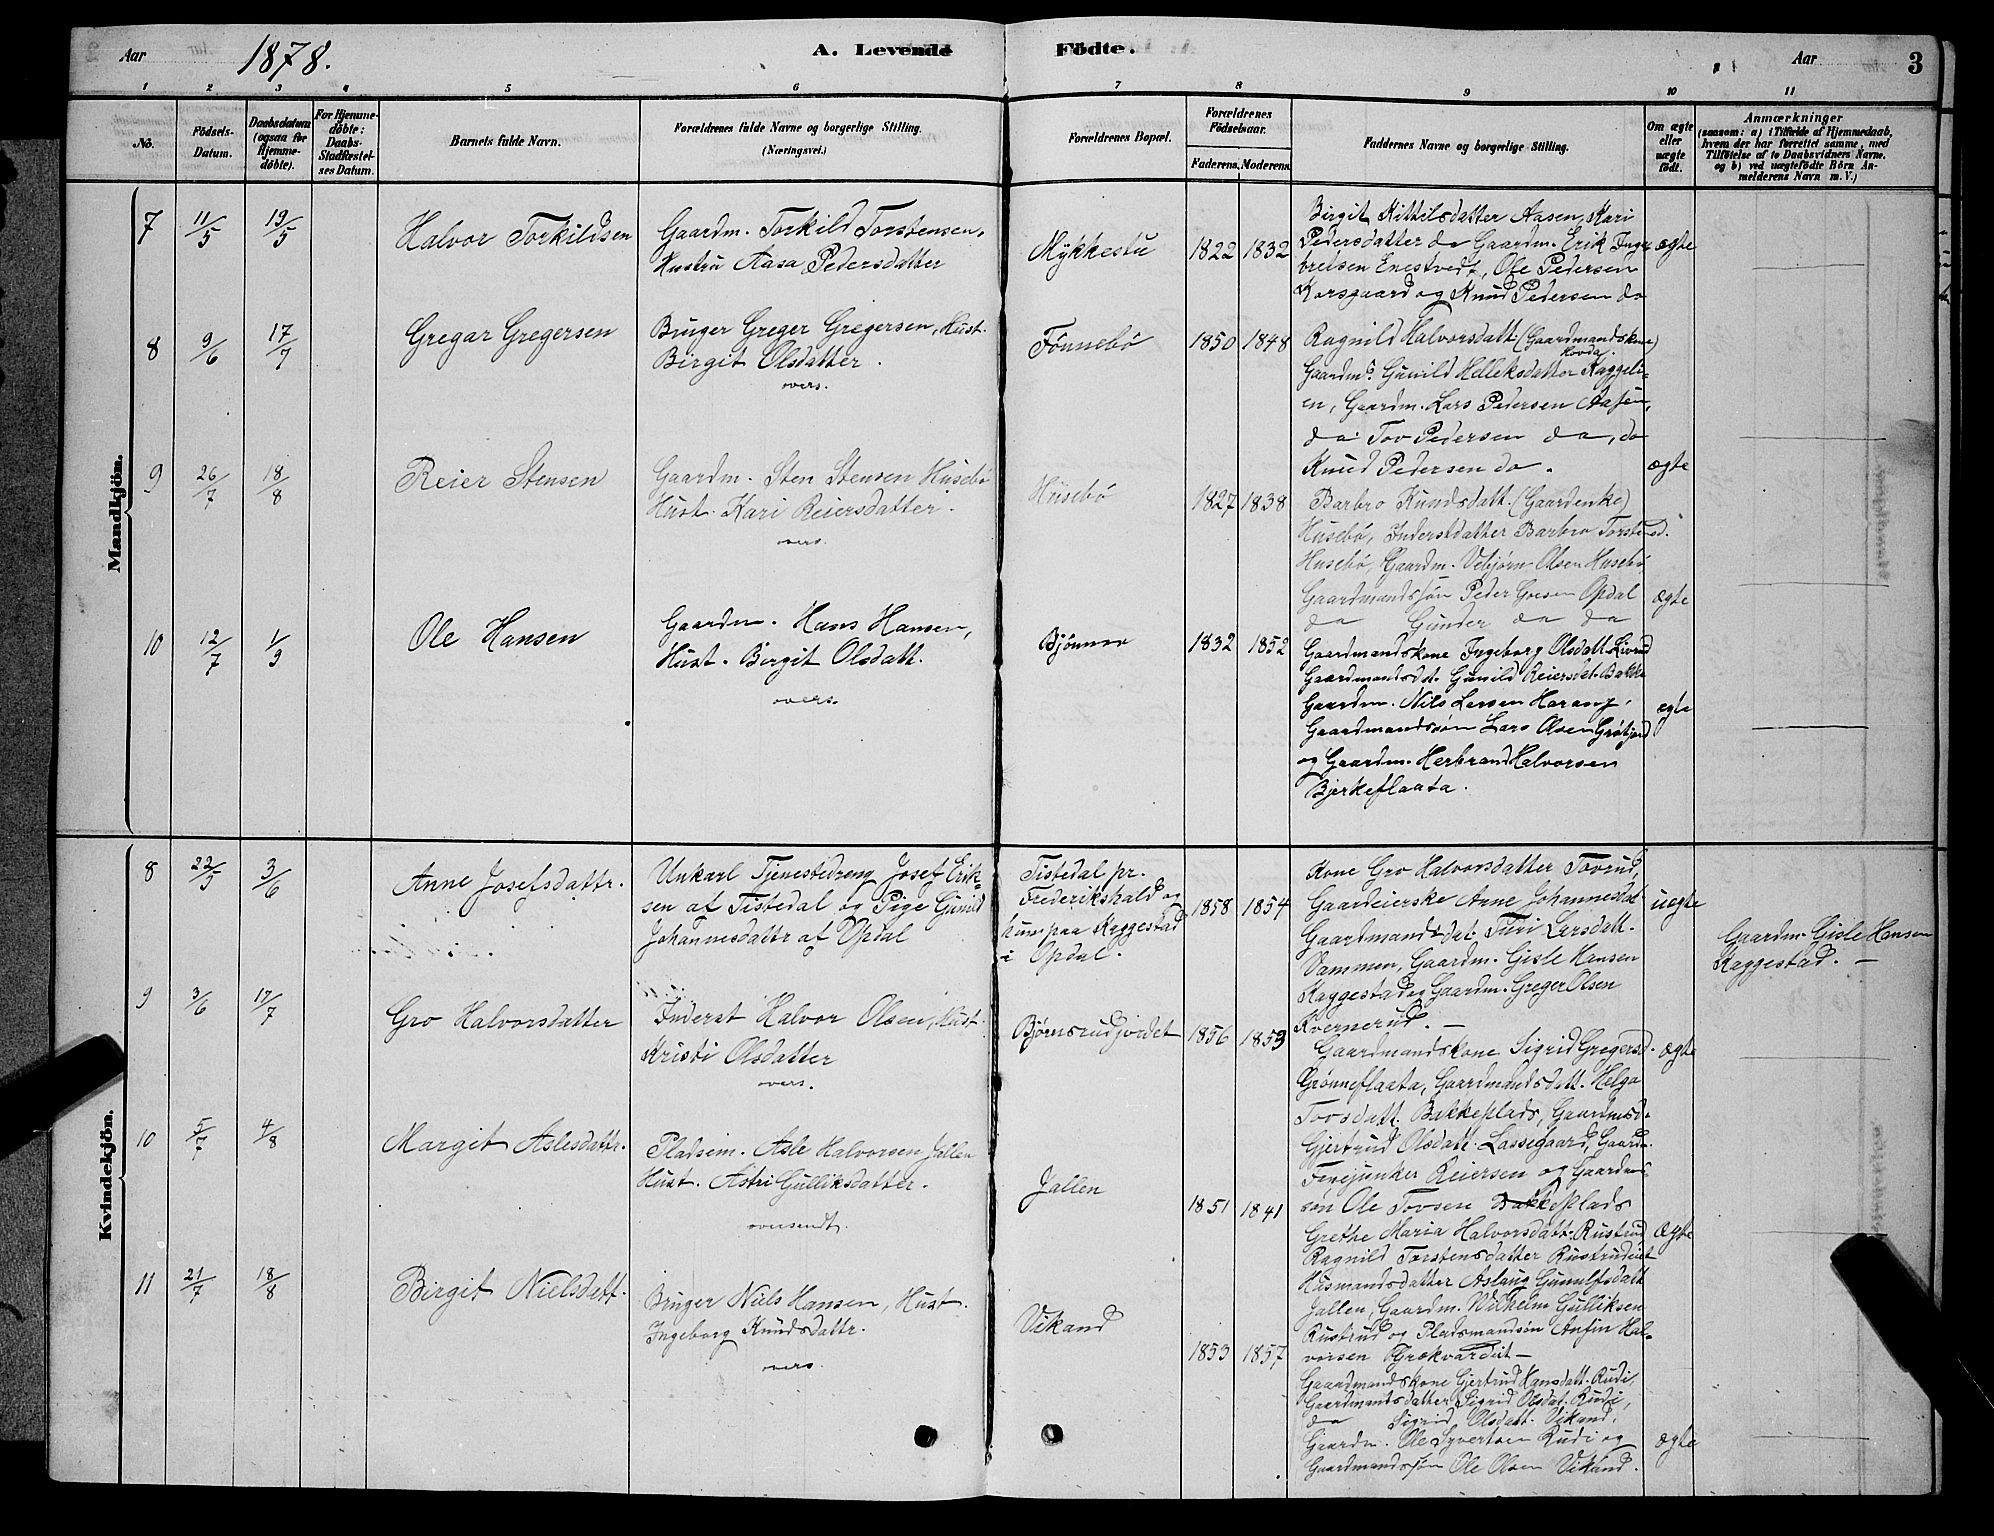 Aar 1878. A. Levende Födte. Aar 3
1 2 3 4 5 6 7 8 9 10 11
No.
Födsels-Datum.
Daabsdatum (ogsaa for Hjemme-döbte).
For Hjemme-döbte: Daabs-Stadfæstel-ses Datum.
Barnets fulde Navn.
Forældrenes fulde Navne og borgerlige Stilling.
(Næringsvei.)
Forældrenes Bopæl.
Forældrenes Födselsaar.
Faderens. Moderens.
Faddernes Navne og borgerlige Stilling.
Om ægte eller uægte födt.
Anmærkninger
(saasom: a) i Tilfælde af Hjemmedaab,
hvem der har forrettet samme, med
Tilföielse af to Daabsvidners Navne.
og b) ved uægtefödte Börn An-
melderens Navn m. V.)
Mandkjön.
7 11/5 19/5
Halvor Torkildsen
Gaardm. Torkild Torstensen,
Hustru Aasa Pedersdatter
Mykkestu
1822 1832
Birgit Kittilsdatter Aasen, Kari
Pedersdatter do Gaardm. Erik Inge-
bretsen Enestvedt, Ole Pedersen
Korsgaard og Knud Pedersen do
ægte
8 9/6 17/7
Gregar Gregersen
Bruger Greger Gregersen, Hust.
Birgit Olsdatter.
overs.
Fønnebø
1850 1848
Ragnild Halvorsdatt. (Gaardmandskone)
Hovda.
Gaardmd. Gunild Helleksdatter Kaggeli-
en, Gaardm. Lars Pedersen Aasen,
do Tov Pedersen do, do
Knud Pedersen do.
ægte
9 26/7 18/8
Reier Stensen
Gaardm. Sten Stensen Husebø
Hust. Kari Reiersdatter.
overs.
Husebø
1827 1838
Barbro Knudsdatt. (Gaardenke)
Husebø, Inderstdatter Barbro Torstensd.
Husebø, Gaardm. Vebjørn Olsen Husebø
Gaardmandssøn Peder Goesen Opdal
do Gunder do do
ægte
10 12/7 1/9
Ole Hansen
Gaardm. Hans Hansen,
Hust. Birgit Olsdatt.
overs.
Bjønnerø
1832 1852
Gaardmandskone Ingeborg Olsdatt. Livrud
Gaardmandsdat. Gunild Reiersdat. Bakke
Gaardm. Nils Larsen Harang,
Gaardmandssøn Lars Olsen Grøtjord
og Gaardm. Herbrand Halvorsen
Bjerkeflaata.
ægte
Kvindekjön.
8 22/5 3/6
Anne Josefsdattr.
Unkarl Tjenestedreng Josef Erik-
sen af Tistedal og Pige Gunild
Johannesdattr af Opdal
Tistedal pr.
Frederikshald og
hun paa Kaggestad
i Opdal.
1858 1854
Kone Gro Halvorsdatter Tovrud,
Gaardeierske Anne Johannesdat
Gaardmandsdat. Turi Larsdatt.
Vammen, Gaardm. Gisle Hansen
Kaggestad og Gaardm. Greger Olsen
Kvernerud. —
uægte
Gaardm. Gisle Hansen
Kaggestad. —
9 3/6 17/7
Gro Halvorsdatter
Inderst Halvor Olsen, Hust.
Kristi Olsdatter
overs.
Bjørnsrudjordet
1856 1853
Gaardmandskone Sigrid Gregersd.
Grønneflaata, Gaardmandsdatt. Helga
Tovsdatt. Bakkeplads, Gaardmsd.
Gjertrud Olsdatt. Lassegaard, Gaardm.
Fenejunker Reiersen og Gaardms
søn Ole Tovsen Bakkeplads
ægte
10 5/7 4/8
Margit Aslesdattr.
Pladsem. Asle Halvorsen Jallen
Hust. Astri Gulliksdatter.
oversendt.
Jallen
1851 1841
Grethe Maria Halvorsdatt. Rustrud
Ragnild Torstensdatter Rustrudeiet
Husmandsdatter Aslaug Gunulfsdatt
Jallen, Gaardm. Wilhelm Gulliksen
Rustrud og Pladsmandssøn Anfin Hal-
vorsen Grækvardeit —
ægte
11 21/7 18/8
Birgit Nielsdatt.
Bruger Niels Hansen, Hust.
Ingeborg Knudsdattr.
overs.
Vikand
1853 1857
Gaardmandskone Gjertrud Hansdatt. Rudi,
Gaardmandsdatter Sigrid Olsdat. Rudi,
do Sigrid Olsdatt. Vikand,
Gaardm. Ole Syvertsen Rudi og
Gaardmandssøn Ole Olsen Vikand.
ægte